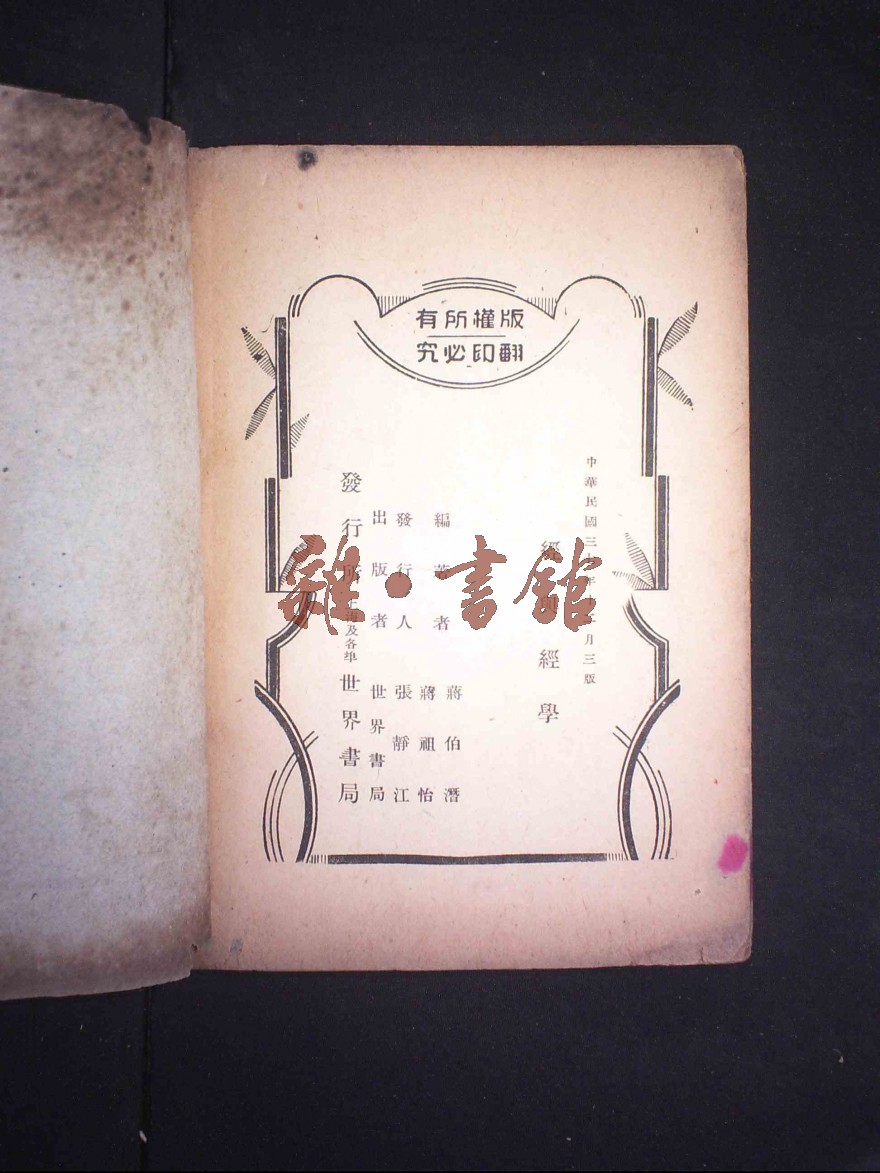 版權所有
翻印必究
中華民國三十年十二月三版
經與經學
編著者 蔣伯潛
蔣祖怡
發行人 張靜江
出版者 世界書局
發行所 上海及各埠 世界書局
雜·書館